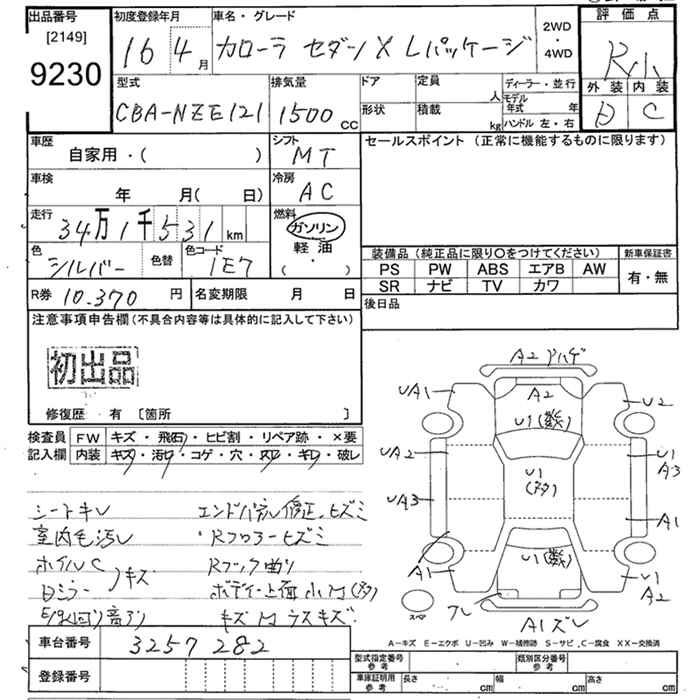 出品番号 初度登録年月 車名・グレード 2WD・4WD 評価点
[2149]
9230
16年4月 カローラ セダン X Lパッケージ R小
型式 排気量 ドア 定員 人 ディーラー・並行 外装 内装
CBA-NZE121 1500cc 形状 積載 kg モデル年式 年 ハンドル 左・右 C
車歴 シフト セールスポイント (正常に機能するものに限ります)
自家用・( ) MT
車検 冷房
年 月( 日) AC
走行 燃料
34万1千531km ガソリン
色 色替 色コード 軽油
シルバー 1E7 ( ・ )
装備品 (純正品に限り○をつけてください) 新車保証書
PS PW ABS エアB AW 有・無
SR ナビ TV カワ
R券 10.370円 名変期限 月 日 後日品
注意事項申告欄 (不具合内容等は具体的に記入して下さい)
初出品
修復歴 有 〔箇所 〕
検査員記入欄 FW キズ・飛石・ヒビ割・リペア跡・×要
内装 キズ・汚れ・コゲ・穴・スレ・キレ・破レ
シートキレ エンドパネル修正、ヒズミ
室内毛汚レ ・Rフロアーヒズミ
ホイルC Rフック曲り
ミラー 〉キズ ボデー上面小M(多)
キズ M ラスキズ
A2 ハゲ
UA1 A2 U2
U1(数)
UA2 U1 A3
U1(多)
UA3 A1
U1(数)
A1 U1 A2
スペア フレ A1ズレ
A-キズ E-エクボ U-凹み W-補修跡 S-サビ C-腐食 XX-交換済
車台番号 3257282
登録番号
型式指定番号 参考 類別区分番号 参考
車庫証明用 参考 長さ cm 幅 cm 高さ cm